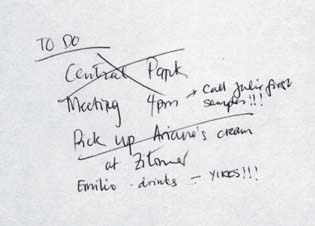 TO DO
Central Park
Meeting 4pm → Call Julie first
samples!!!
Pick up Ariane's cream
at Zitomer
Emilio - drinks - YIKES!!!